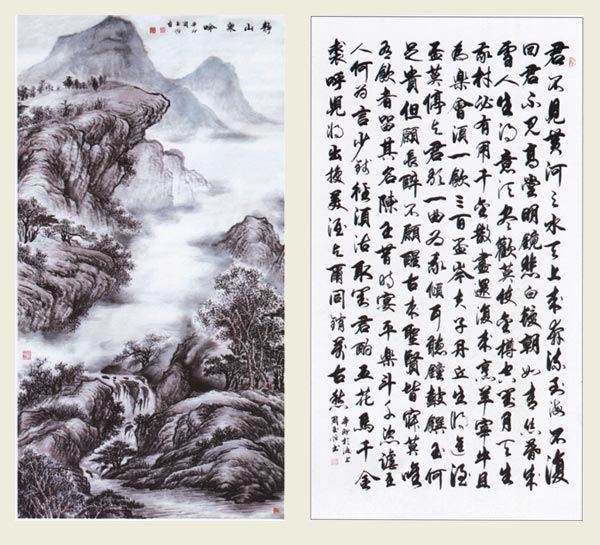 靜山泉吟
辛卯
君不見黃河之水天上來奔流到海不復
回君不見高堂明鏡悲白髮朝如青絲暮成
雪人生得意須盡歡莫使金樽空對月天生
我材必有用千金散盡還復來烹羊宰牛且
為樂會須一飲三百盃岑夫子丹丘生將進酒
盃莫停與君歌一曲為我傾耳聽鐘鼓饌玉何
足貴但願長醉不願醒古來聖賢皆寂寞唯
有飲者留其名陳王昔時宴平樂斗千恣謔主
人何為言少錢徑須沽取對君酌五花馬千金
裘呼兒將出換美酒與爾同銷萬古愁
辛卯於海上